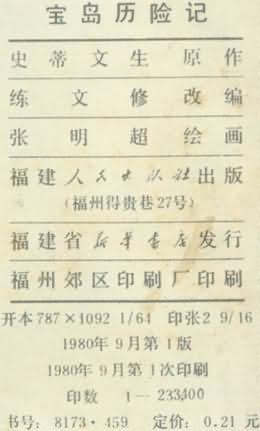 宝岛历险记
史蒂文生 原作
练文修 改编
张明超 绘画
福建人民出版社出版
(福州得贵巷27号)
福建省新华书店发行
福州郊区印刷厂印刷
开本787×1092 1/64 印张2 9/16
1980年9月第1版
1980年9月第1次印刷
印数 1—233,100
书号: 8173·459 定价: 0.21元